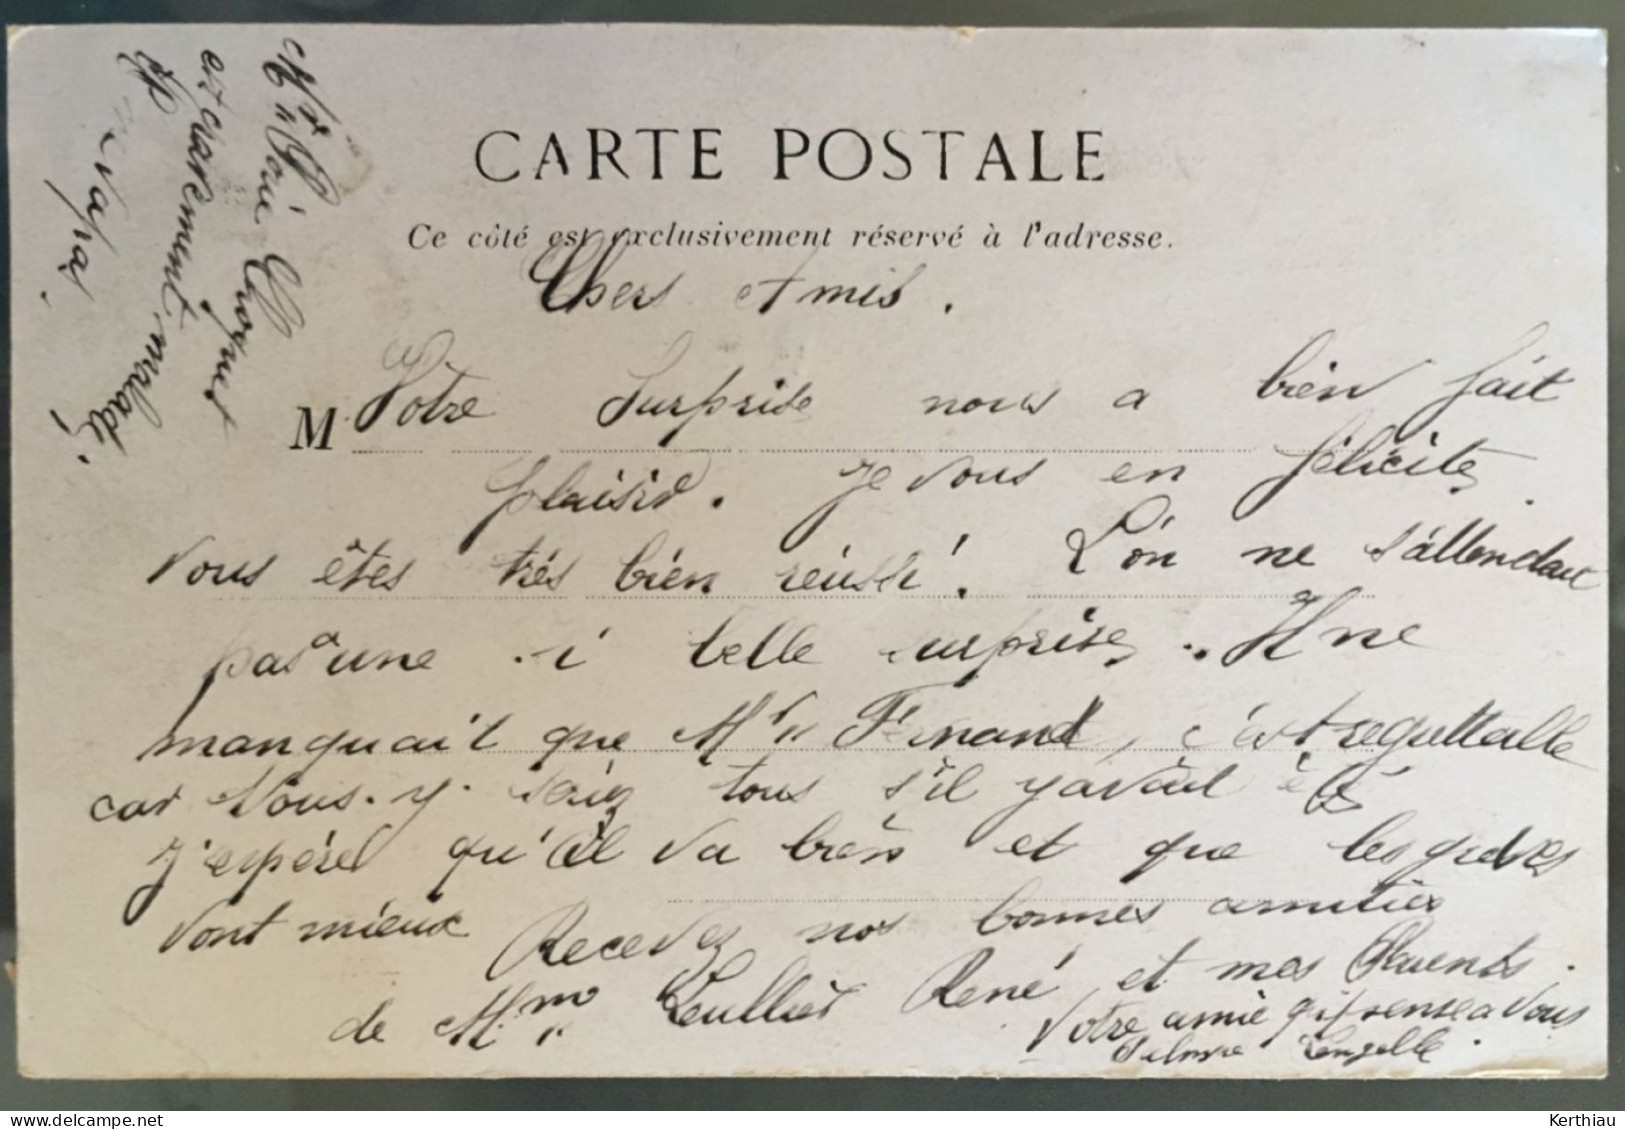 CARTE POSTALE
Ce côté est exclusivement réservé à l'adresse.
Chers Amis.
M. Vôtre Surprise nous a bien fait
plaisir. Je vous en félicite.
Vous êtes très bien réussi. L'on ne s'attendait
pas a une si telle surprise. Il ne
manquait que Mr Fernand, c'est regrettable
car Vous y seriez tous s'il y avait été
J'espère qu'il va bien et que les
vont mieux Recevez nos bonnes amitiés
de Mme René et mes Parents.
Votre amie qui pense a Vous
Mr
est carément malade
va pas.
Kerthiau